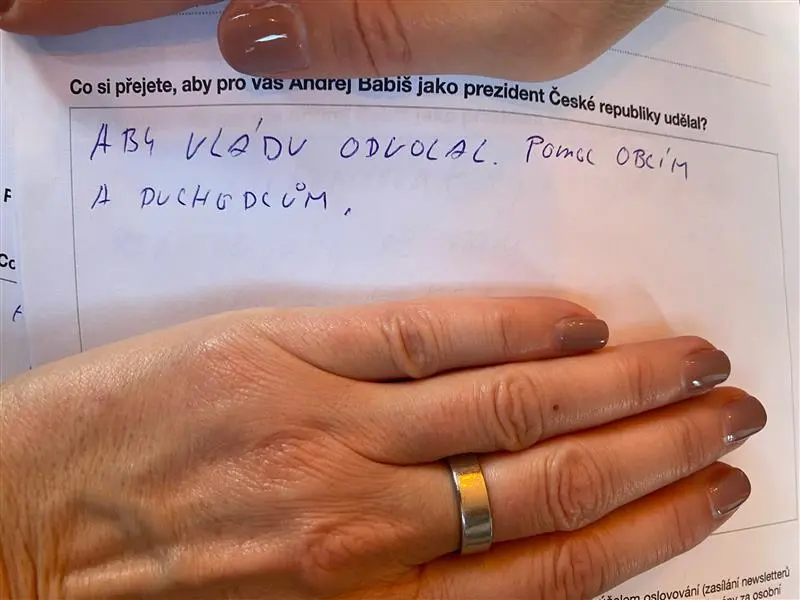 Co si přejete, aby pro vás Andrej Babiš jako prezident České republiky udělal?
ABY VLÁDU ODVOLAL. POMOC OBCÍM
A DUCHODCŮM.
Co
oslovování (zasílání newsletterů
za osobní